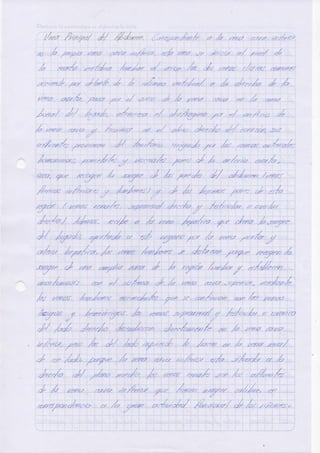 Vena Principal del Abdomen. Correspondiente a la vena cava inferior
es la propia vena cava inferior, esta vena se inicia al nivel de
la cuarta vertebra lumbar al unirse las dos venas iliacas comunes
asciende por delante de la columna vertebral a la derecha de la
vena aorta, pasa por el surco de la vena cava en la
del hígado, atraviesa el diafragma por el orificio de
la vena cava y termina en el atrio derecho del corazón, sus
afluentes provienen del territorio irrigado por las ramas
parietales y viscerales pares de la arteria aorta,
sea, que recogen la sangre de las paredes del abdomen (venas
frénicas inferiores y lumbares) y de los órganos pares de esta
región (venas renales, suprarrenal derecha y testicular u ovárica
derecha). Además, recibe a la vena hepática que drena la sangre
del hígado, aportada a este órgano por la vena porta y
arteria hepática, las venas lumbares se destacan porque recogen la
sangre de una amplia zona de la región lumbar y establecen
anastomosis con el sistema de la vena cava superior, mediante
las venas lumbares ascendentes que se continúan con las venas
ácigos y hemiácigos. Las venas suprarrenal y testicular u ovárica
del lado derecho desembocan directamente en la vena cava
inferior, pero las del lado izquierdo lo hacen en la vena renal
de ese lado porque la vena cava inferior esta situada a la
derecha del plano medio, las venas renales son las afluentes
de la vena cava inferior que tienen mayor calibre, en
correspondencia a la gran actividad funcional de los riñones.